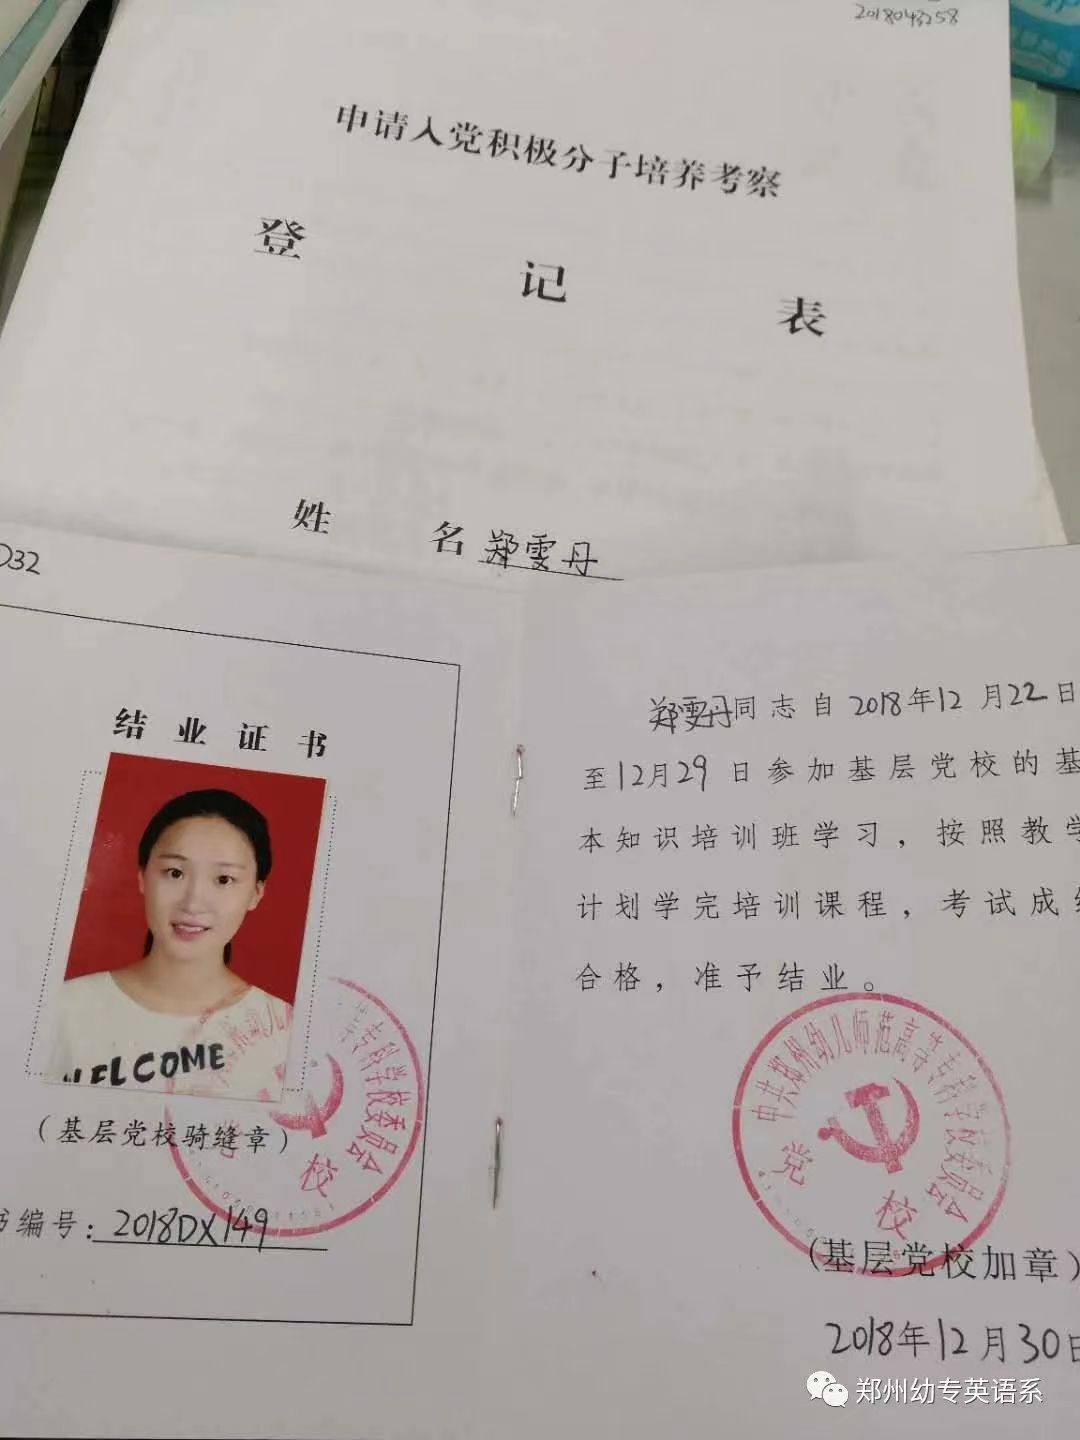 2018043258
申请入党积极分子培养考察
登记表
姓名 郑雯丹
D32
结业证书
WELCOME
专科学校委员会
校
(基层党校骑缝章)
书编号：2018DX149
郑雯丹同志自2018年12月22日
至12月29日参加基层党校的基
本知识培训班学习，按照教学
计划学完培训课程，考试成绩
合格，准予结业。
中共郑州幼儿师范高等专科学校委员会
党校
(基层党校加章)
2018年12月30日
郑州幼专英语系